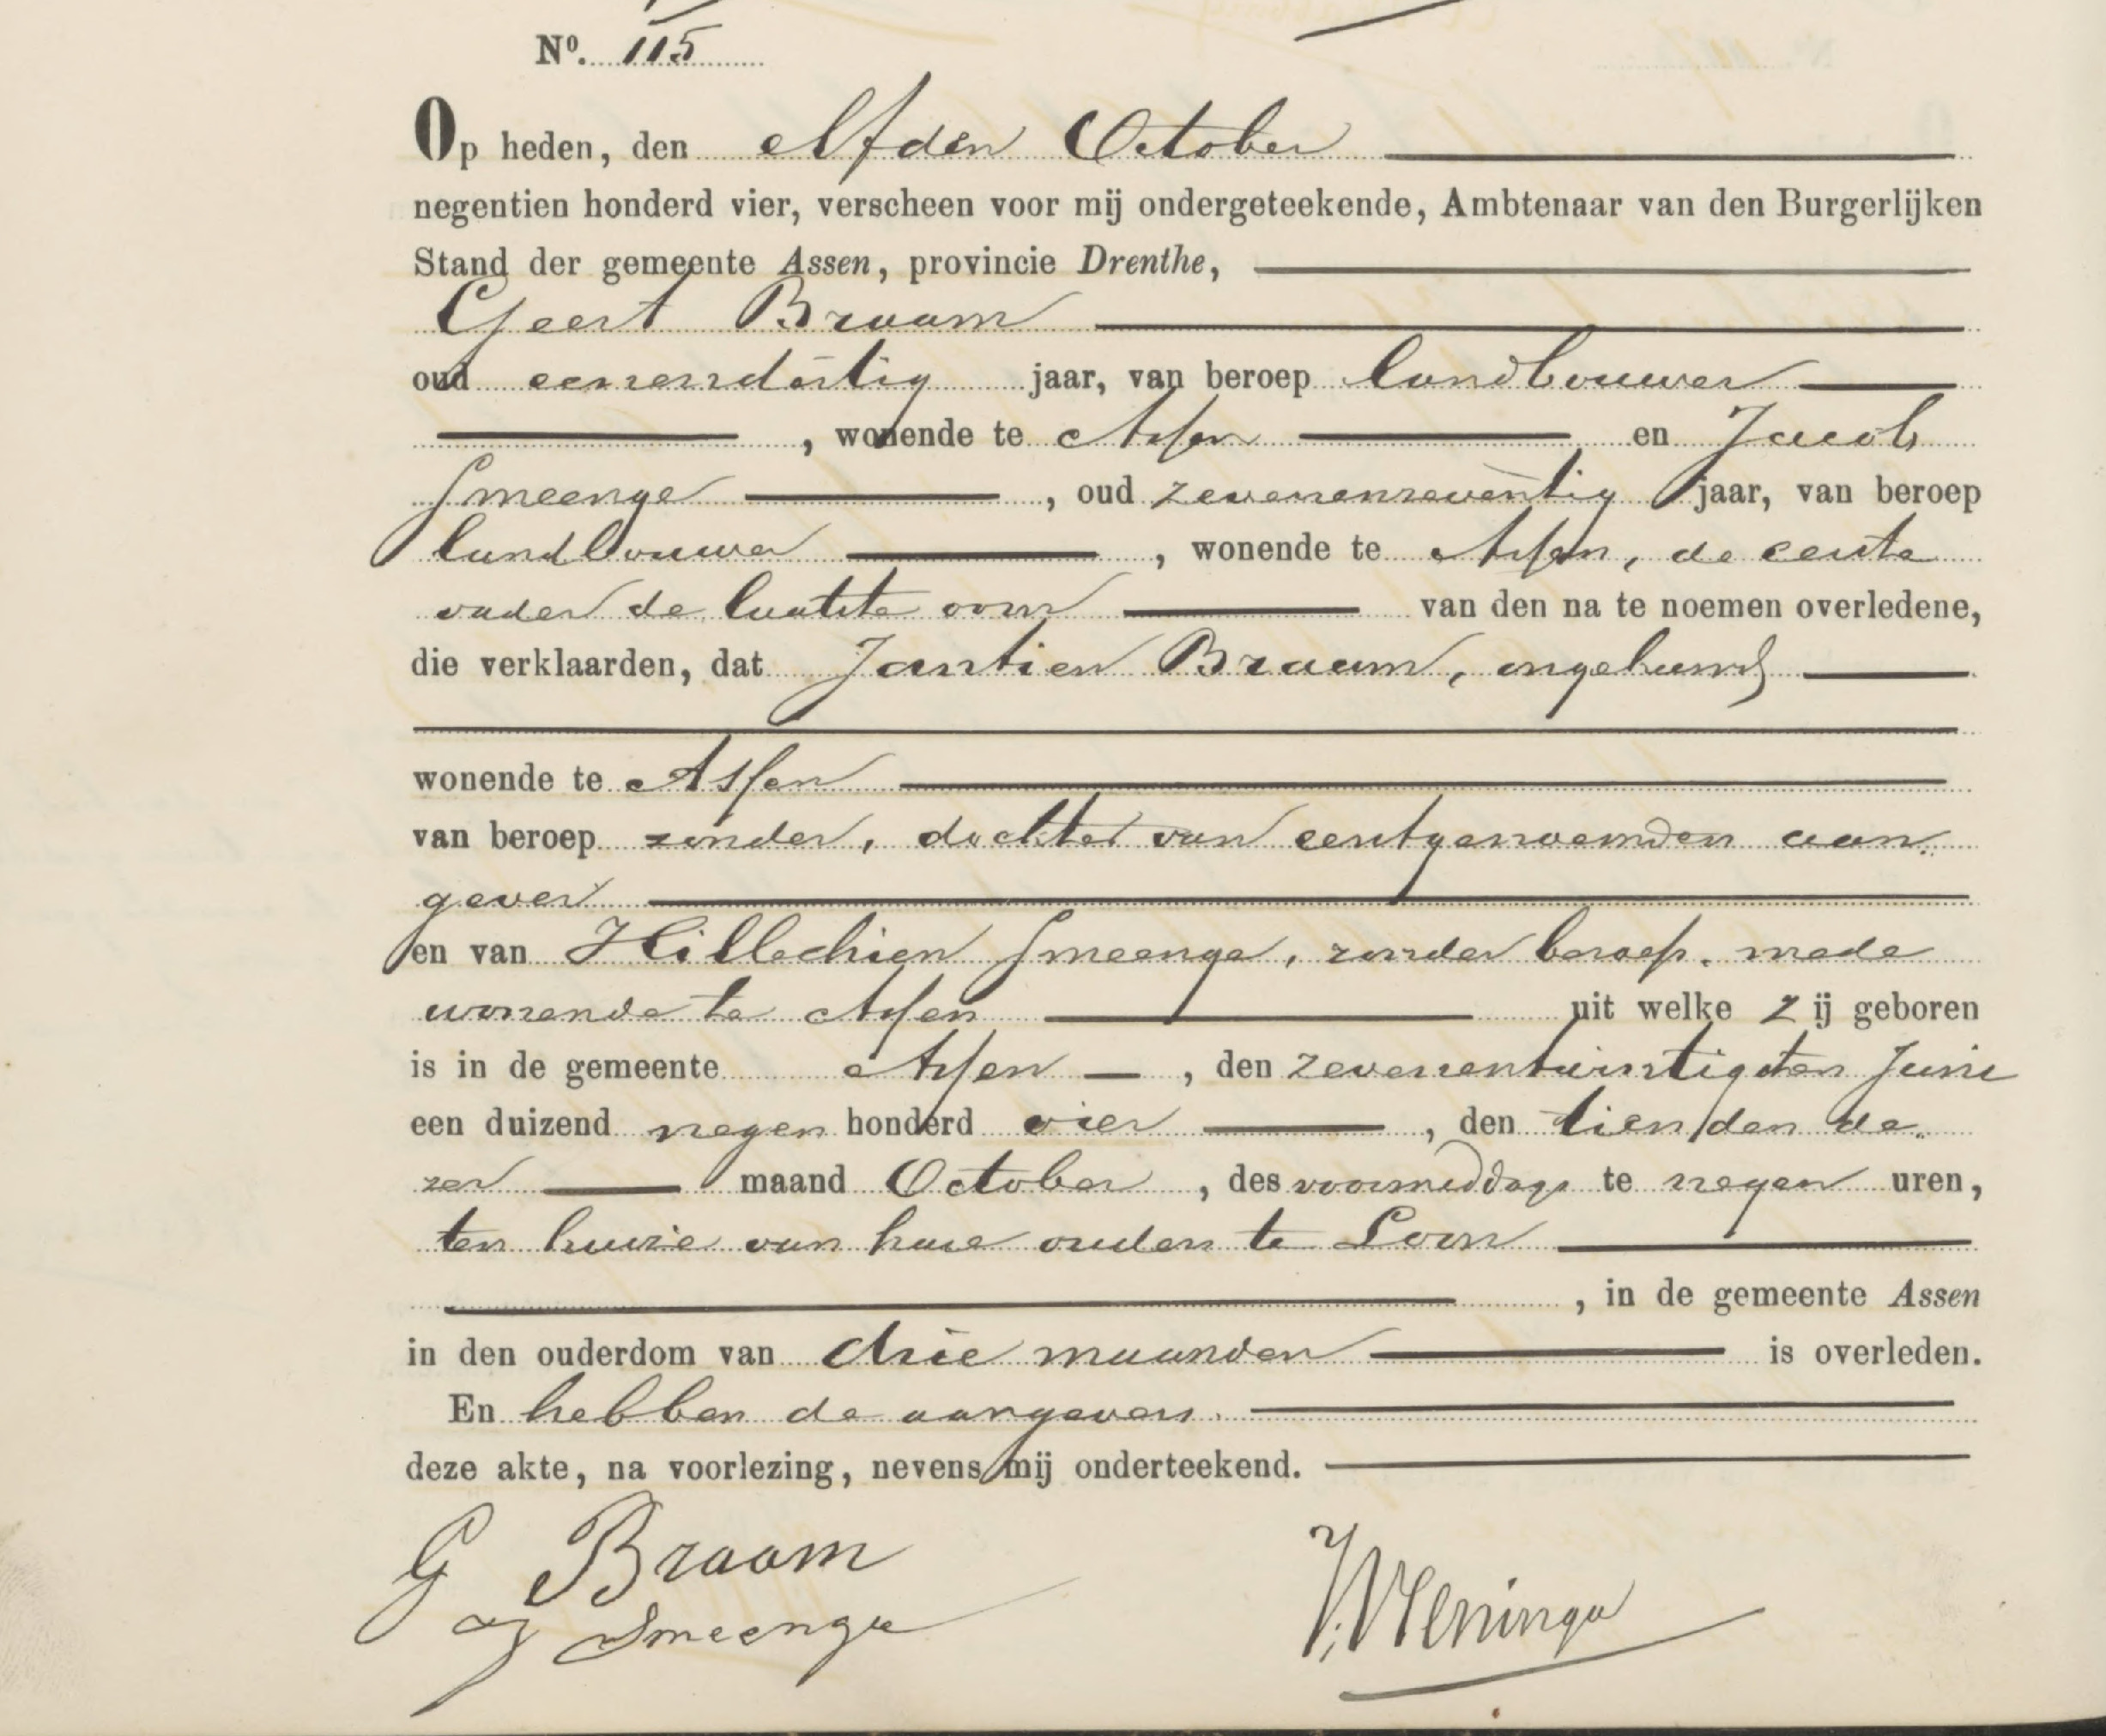 Nº. 115
Op heden, den elfden October
negentien honderd vier, verscheen voor mij ondergeteekende, Ambtenaar van den Burgerlijken
Stand der gemeente Assen, provincie Drenthe,
Geert Braam
oud eenendertig jaar, van beroep landbouwer
, wonende te Assen en Jacob
Smeenge, oud zevenenzeventig jaar, van beroep
landbouwer, wonende te Assen, de eerste
vader de laatste oom van den na te noemen overledene,
die verklaarden, dat Jantien Braam, ongehuwd
wonende te Assen
van beroep zonder, dochter van eerstgenoemden aan-
gever
en van Hillechien Smeenge, zonder beroep, mede
wonende te Assen uit welke zij geboren
is in de gemeente Assen, den zevenentwintigsten Juni
een duizend negen honderd vier, den tienden de-
zer maand October, des voormiddags te negen uren,
ten huize van hare ouders te Loon
, in de gemeente Assen
in den ouderdom van drie maanden is overleden.
En hebben de aangevers
deze akte, na voorlezing, nevens mij onderteekend.
G Braam
Smeenge